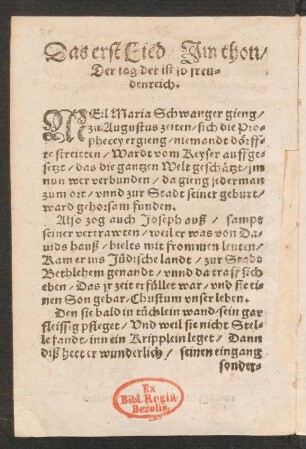 Das erst Lied / Im thon /
Der tag der ist so freu-
denreich.
WEil Maria Schwanger gieng /
zu Augustus zeiten / sich die Pro-
phecey ergieng / niemandt dörff-
te streitten / Wardt vom Keyser auffge-
setzt / das die gantzen Welt geschätzt / jm
nun wer verbunden / da gieng jederman
zum ort / vnnd zur Stadt seiner geburt /
ward gehorsam funden.
Also zog auch Joseph auß / sampt
seiner vertrawten / weil er was von Da-
uids hauß / hielts mit frommen leuten /
Kam er ins Jüdische landt / zur Stadt
Bethlehem genandt / vnnd da traff sich
eben / Das jr zeit erfüllet war / vnd sie ei-
nen Son gebar / Christum vnser leben.
Den sie bald in tüchlein wand / sein gar
fleissig pfleget / Vnd weil sie nicht Stel-
le fandt / inn ein Kripplein leget / Dann
diß hett er wunderlich / seinen eingang
sonder-
Ex
Bibl. Regia
Berolin.